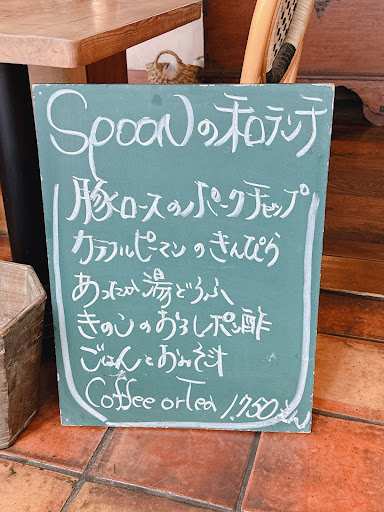 Spoonの和ランチ
豚ロースのポークチャップ
カラフルピーマンのきんぴら
あったか湯どうふ
きのこのおろしポン酢
ごはんとおみそ汁
Coffee or Tea 1,750えん